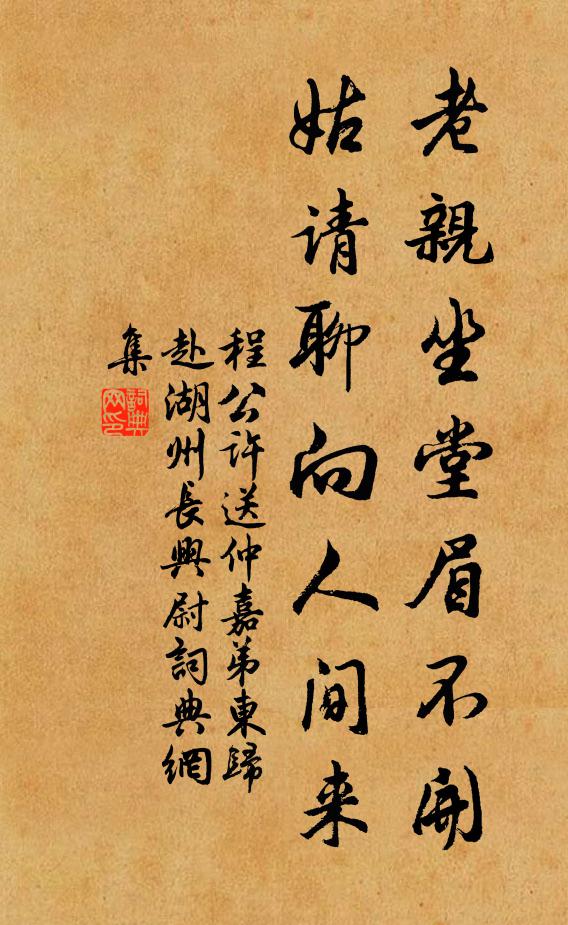 老親坐堂眉不開
姑请聊向人间来
程公许送仲嘉弟東歸
赴湖州長興尉詞典網
集
詞典
网印